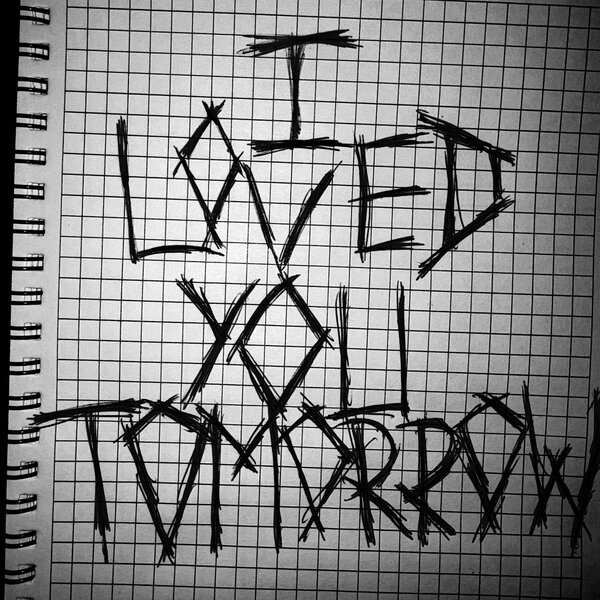 I
LOVED
YOU
TOMORROW